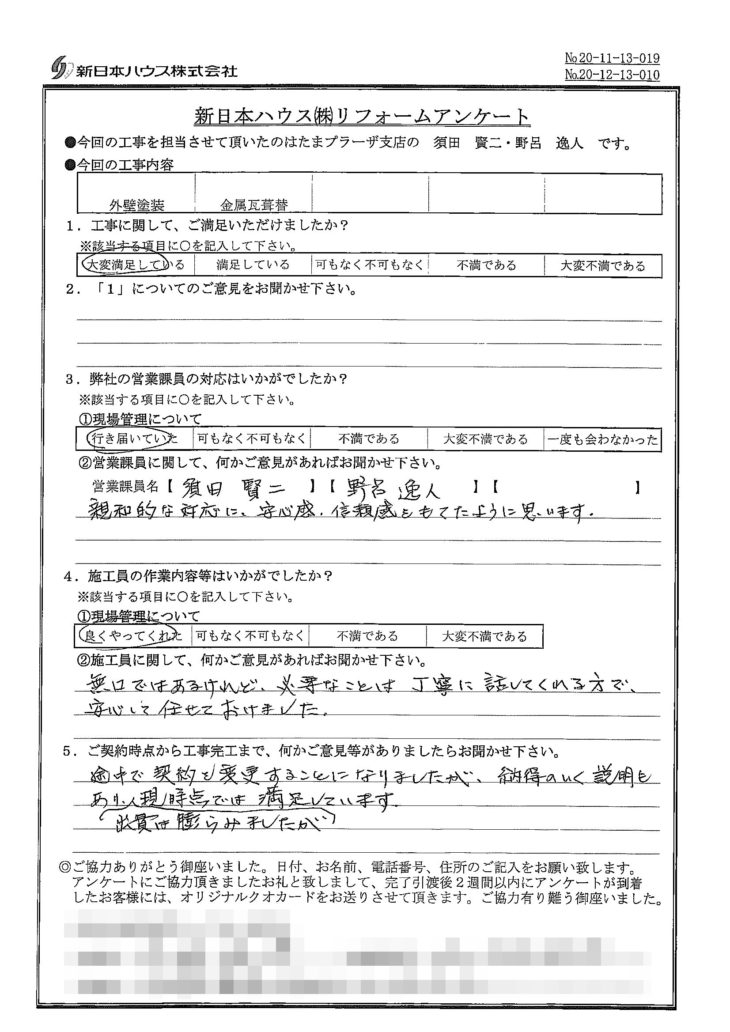 新日本ハウス株式会社
№20-11-13-019
№20-12-13-010
新日本ハウス㈱リフォームアンケート
●今回の工事を担当させて頂いたのはたまプラーザ支店の 須田 賢二・野呂 逸人 です。
●今回の工事内容
外壁塗装 金属瓦葺替
1．工事に関して、ご満足いただけましたか？
※該当する項目に○を記入して下さい。
大変満足している 満足している 可もなく不可もなく 不満である 大変不満である
2．「1」についてのご意見をお聞かせ下さい。
3．弊社の営業課員の対応はいかがでしたか？
※該当する項目に○を記入して下さい。
①現場管理について
行き届いていた 可もなく不可もなく 不満である 大変不満である 一度も会わなかった
②営業課員に関して、何かご意見があればお聞かせ下さい。
営業課員名【 須田 賢二 】【 野呂 逸人 】【 】
親和的な対応に、安心感、信頼感をもてたように思います。
4．施工員の作業内容等はいかがでしたか？
※該当する項目に○を記入して下さい。
①現場管理について
良くやってくれた 可もなく不可もなく 不満である 大変不満である
②施工員に関して、何かご意見があればお聞かせ下さい。
無口ではあるけれど、必要なことは丁寧に話してくれる方で、
安心して任せておけました。
5．ご契約時点から工事完工まで、何かご意見等がありましたらお聞かせ下さい。
途中で契約を変更することになりましたが、納得のいく説明も
あり、現時点では満足しています。
（出費は膨らみましたが）
◎ご協力ありがとう御座いました。日付、お名前、電話番号、住所のご記入をお願い致します。
アンケートにご協力頂きましたお礼と致しまして、完了引渡後2週間以内にアンケートが到着
したお客様には、オリジナルクオカードをお送りさせて頂きます。ご協力有り難う御座いました。